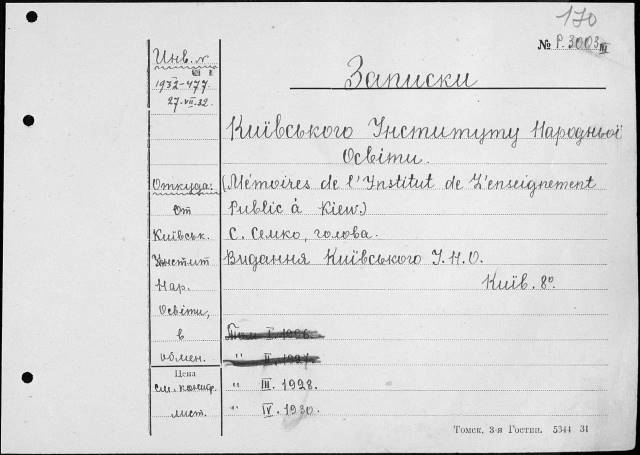 170
№ Р. 3003 III
Инв. №
1932-477
27.VII.32.
Записки
Київського Інституту Народньої
Освіти.
Откуда: (Mémoires de l'Institut de L'enseignement
от Public à Kiew.)
Київськ. С. Семко, голова.
Инстит Видання Київського І.Н.О.
Нар. Київ. 8º
Освіти,
в Том I. 1926.
обмен. " II. 1927.
Цена
см. конир. " III. 1928.
лист. " IV. 1930.
Томск, 3-я Гостип. 5344 31